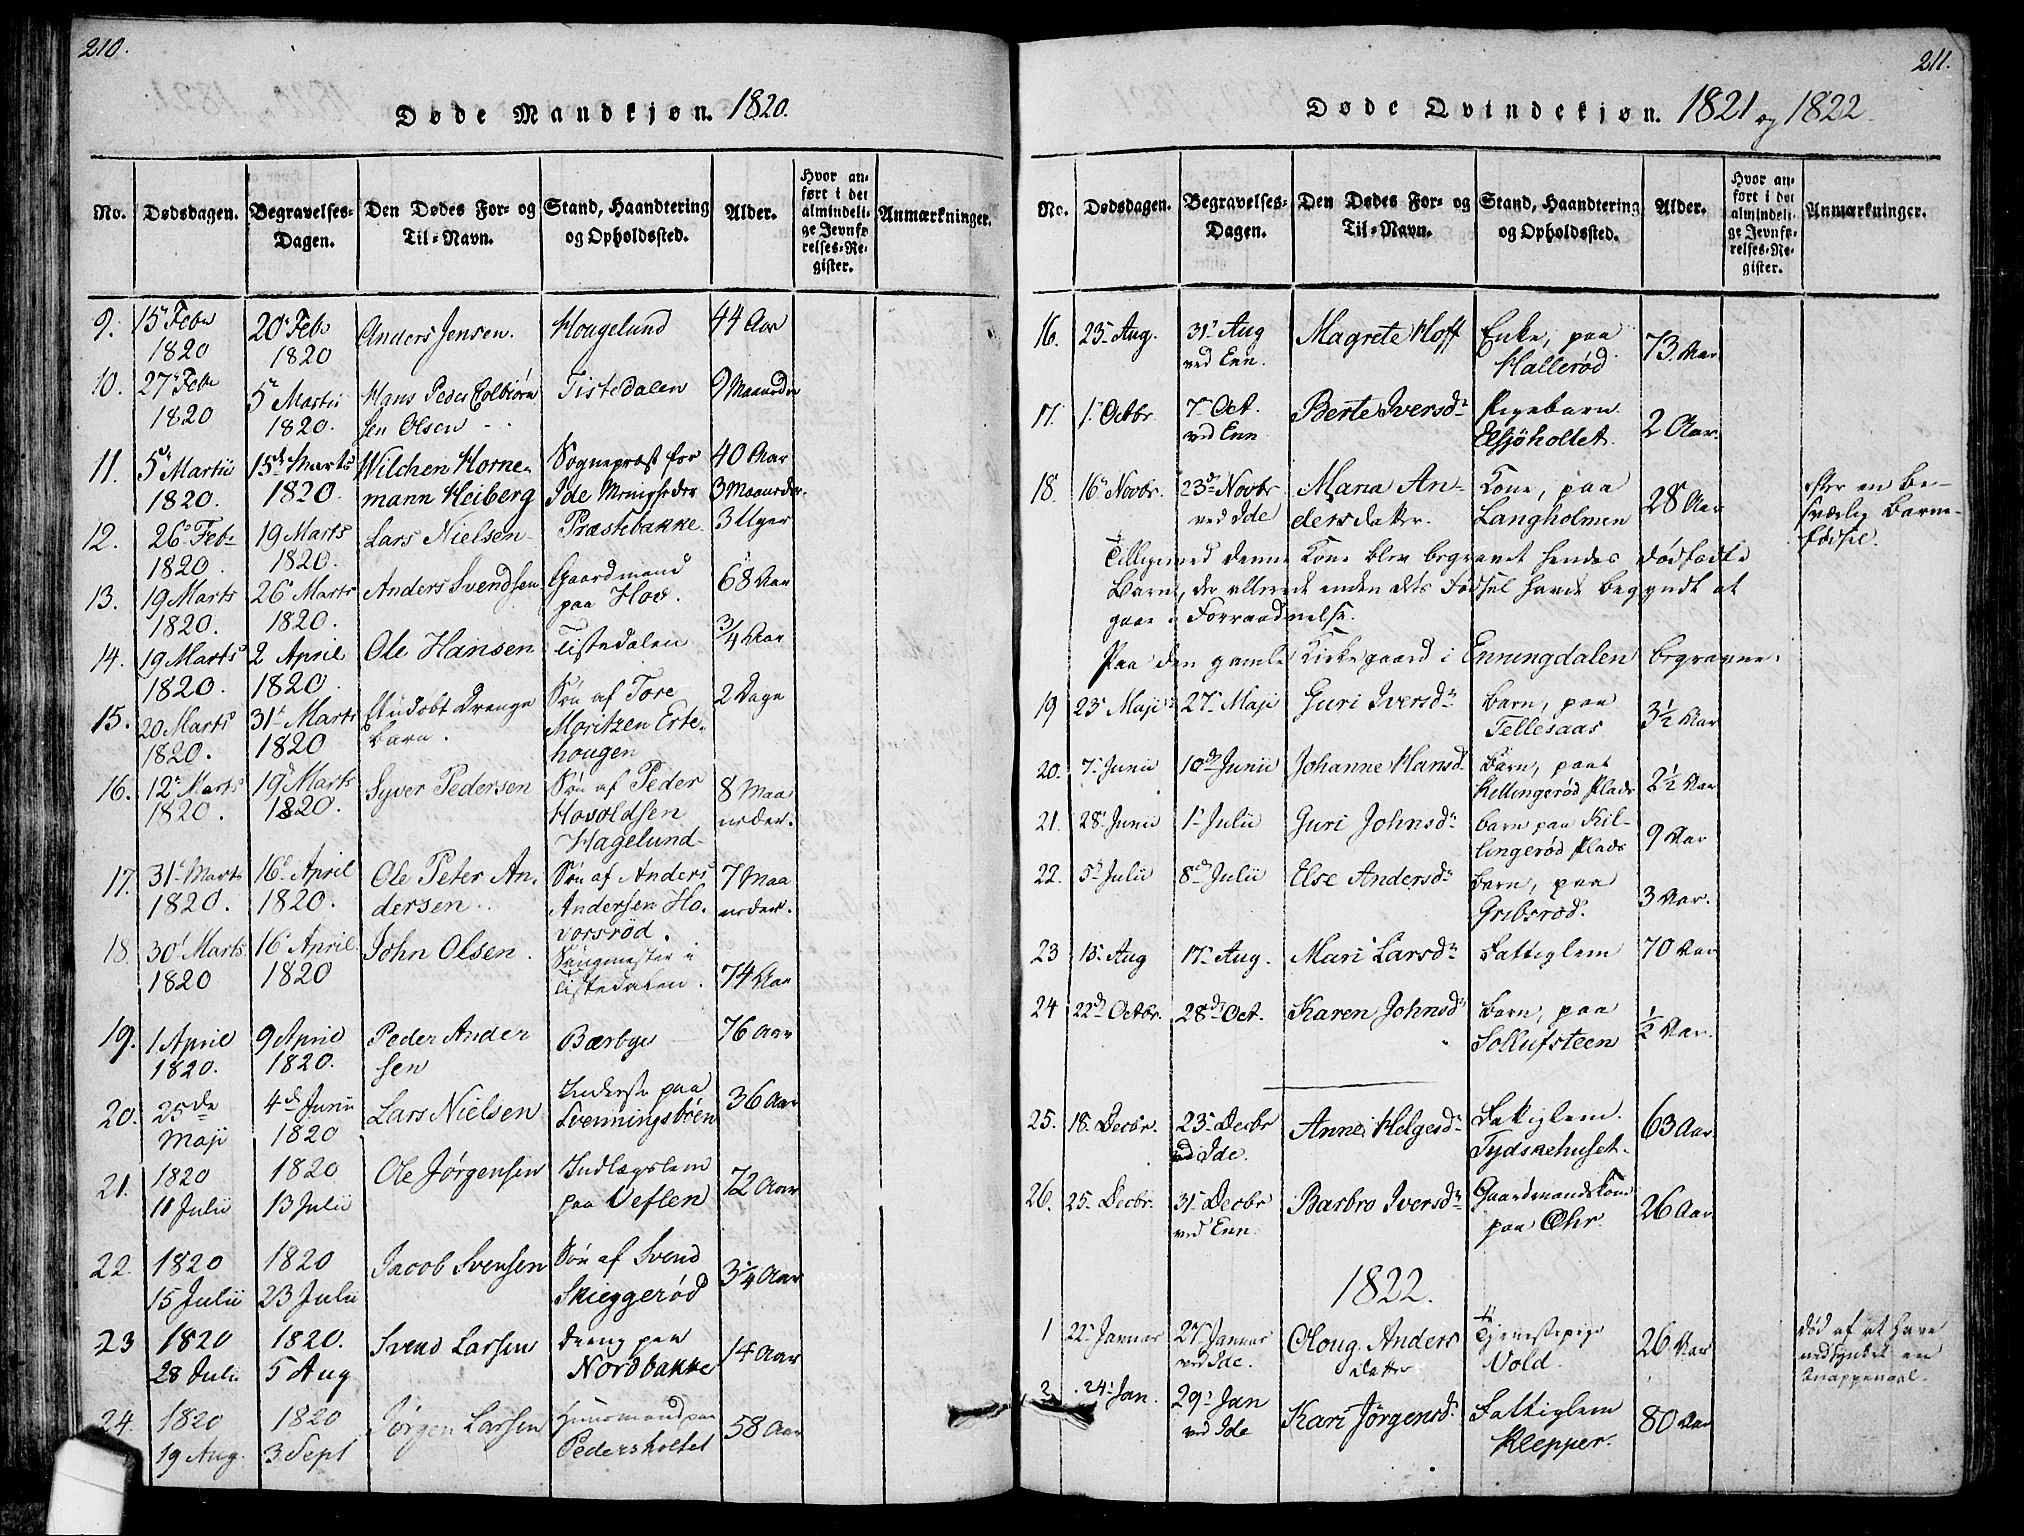 210.
Døde Mandkjøn. 1820.
No. Dødsdagen. Begravelses-Dagen. Den Dødes For- og Til-Navn. Stand, Haandtering og Opholdssted. Alder. Hvor anført i det almindelige Jevnførelses-Register. Anmærkninger.
9. 15 Febr 1820 20 Feb 1820 Anders Jensen. Hougelund 44 Aar
10. 27 Febr 1820 5 Martii 1820. Hans Peder Colbiørnsen Olsen Tistedalen 9 Maaneder
11. 5 Martii 1820. 15de Marts 1820. Wilchen Hornemann Heiberg Sognepræst for Ide Menigheder 40 Aar 3 Maaneder.
12. 26 Feb 1820. 19 Marts 1820. Lars Nielsen Præstebakke 3 Uger
13. 19 Marts 1820. 26 Marts 1820. Anders Svendsen Gaardmand paa Hov. 68 Aar
14. 19 Marts 1820. 2 April 1820. Ole Hansen Tistedalen 3/4 Aar
15. 20 Marts 1820. 31 Marts 1820 Et udøbt Drenge Barn. Søn af Tore Moritzen Ertehougen 2 Dage
16. 12 Marts 1820. 19 Marts 1820. Syver Pedersen Søn af Peder Hovoldsen Hagelund 8 Maaneder.
17. 31 Marts 1820. 16 April 1820. Ole Peter Andersen Søn af Anders Andersen Hovorsrød. 7 Maaneder.
18. 30 Marts 1820 16 April 1820 John Olsen. Saugmester i Tistedalen. 74 Aar
19. 1 April 1820. 9 April 1820. Peder Andersen Bærbye 76 Aar
20. 25de Maji 4de Junii 1820 Lars Nielsen Inderste paa Svenningsbøen 36 Aar
21. 1820 11 Julii 1820 13 Julii Ole Jørgensen Indlægslem paa Veflen 72 Aar
22. 1820 15 Julii 1820 23 Julii Jacob Svensen Søn af Svend Skieggerød 3 1/4 Aar
23 1820 28 Julii 1820. 5 Aug Svend Larsen Dreng paa Nordbakke 14 Aar
24. 1820 19 Aug. 1820 3 Sept Jørgen Larsen Huusmand paa Pedersholtet 58 Aar
211.
Døde Qvindekjøn. 1821 og 1822.
No. Dødsdagen. Begravelses-Dagen. Den Dødes For- og Til-Navn. Stand, Haandtering og Opholdssted. Alder. Hvor anført i det almindelige Jevnførelses-Register. Anmærkninger.
16. 23 Aug. 31 Aug ved Enn. Magrete Hoff Enke, paa Hallerød 73 Aar
17. 1 Octbr 7 Oct. ved Enn Berte Iversdr Pigebarn Elsjøhollet. 2 Aar.
18. 16 Novbr. 23de Novbr ved Ide Maria Andersdatter. Kone, paa Langholmen 28 Aar efter en besværlig Barnefødsel.
Tilligemed denne Kone blev begravet hendes dødfødte
Barn, der allerede inden dets Fødsel havde begyndt at
gaae i Forraadnelse.
Paa den gamle Kirkegaard i Enningdalen begravne:
19 23 Maji 27 Maji Guri Iversdr Barn, paa Tellesaas 3 1/2 Aar
20. 7 Junii 10de Junii Johanne Hansd. Barn, paa Killingerød Plads 2 1/2 Aar
21. 28 Junii 1 Julii Guri Johnsdr Barn paa Killingerød Plads 9 Aar
22. 5 Julii 8de Julii Else Andersdr Barn, paa Gribsrød. 3 Aar.
23 15 Aug 17 Aug. Mari Larsdr Fattiglem 70 Aar
24 22de Octbr. 28de Oct. Karen Johnsdr Barn, paa Sollufsteen 1/2 Aar.
25. 18 Decbr. 23 Decbr ved Ide. Anne Helgesdr Fattiglem. Tydskehuset. 63 Aar
26. 25 Decbr. 31 Decbr ved Enn. Barbro Iversdr Gaardmandskone paa Ohr. 26 Aar
1822.
1 22 Januar 27 Januar ved Ide. Oloug Andersdatter Tjenestepige Vold. 26 Aar Død af at have nedsynket en Knappenaal.
2 24 Jan. 29 Jan ved Ide Kari Jørgensd. Fattiglem Klepper. 80 Aar